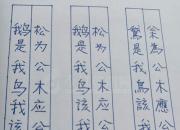 枀為公木應公
鵞是我鳥該我
松为公木应公
鹅是我鸟该我
松为公木应公
鹅是我鸟该我